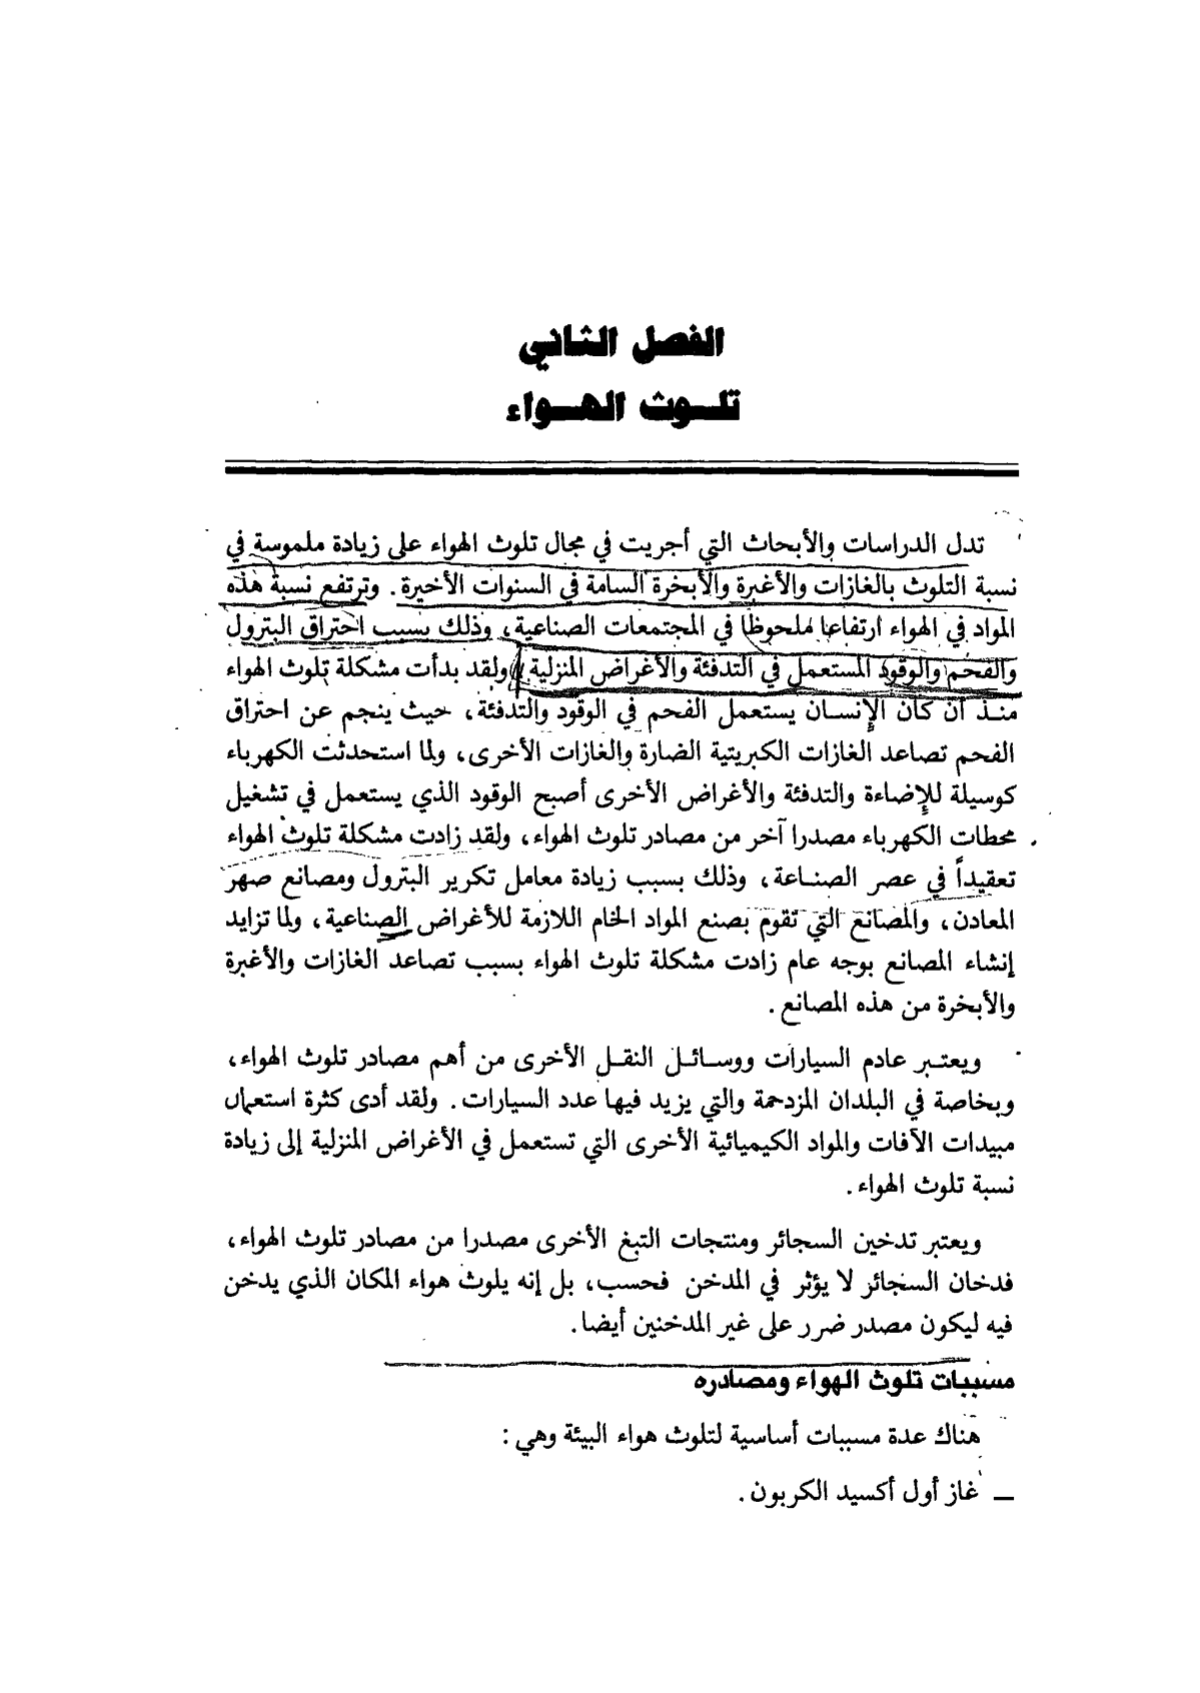 الفصل الثاني
تلـوث الهـواء
تدل الدراسات والأبحاث التي أجريت في مجال تلوث الهواء على زيادة ملموسة في
نسبة التلوث بالغازات والأغبرة والأبخرة السامة في السنوات الأخيرة. وترتفع نسبة هذه
المواد في الهواء ارتفاعا ملحوظا في المجتمعات الصناعية، وذلك بسبب احتراق البترول
والفحم والوقود المستعمل في التدفئة والأغراض المنزلية. ولقد بدأت مشكلة تلوث الهواء
منـذ أن كان الإنسـان يستعمل الفحم في الوقود والتدفئة، حيث ينجم عن احتراق
الفحم تصاعد الغازات الكبريتية الضارة والغازات الأخرى، ولما استحدثت الكهرباء
كوسيلة للإضاءة والتدفئة والأغراض الأخرى أصبح الوقود الذي يستعمل في تشغيل
محطات الكهرباء مصدرا آخر من مصادر تلوث الهواء، ولقد زادت مشكلة تلوث الهواء
تعقيداً في عصر الصنـاعة، وذلك بسبب زيادة معامل تكرير البترول ومصانع صهر
المعادن، والمصانع التي تقوم بصنع المواد الخام اللازمة للأغراض الصناعية، ولما تزايد
إنشاء المصانع بوجه عام زادت مشكلة تلوث الهواء بسبب تصاعد الغازات والأغبرة
والأبخرة من هذه المصانع.
ويعتـبر عادم السيارات ووسـائـل النقـل الأخرى من أهم مصادر تلوث الهواء،
وبخاصة في البلدان المزدحمة والتي يزيد فيها عدد السيارات. ولقد أدى كثرة استعمال
مبيدات الآفات والمواد الكيميائية الأخرى التي تستعمل في الأغراض المنزلية إلى زيادة
نسبة تلوث الهواء.
ويعتبر تدخين السجائر ومنتجات التبغ الأخرى مصدرا من مصادر تلوث الهواء،
فدخان السجائر لا يؤثر في المدخن فحسب، بل إنه يلوث هواء المكان الذي يدخن
فيه ليكون مصدر ضرر على غير المدخنين أيضا.
مسببات تلوث الهواء ومصادره
هناك عدة مسببات أساسية لتلوث هواء البيئة وهي :
ـ غاز أول أكسيد الكربون.